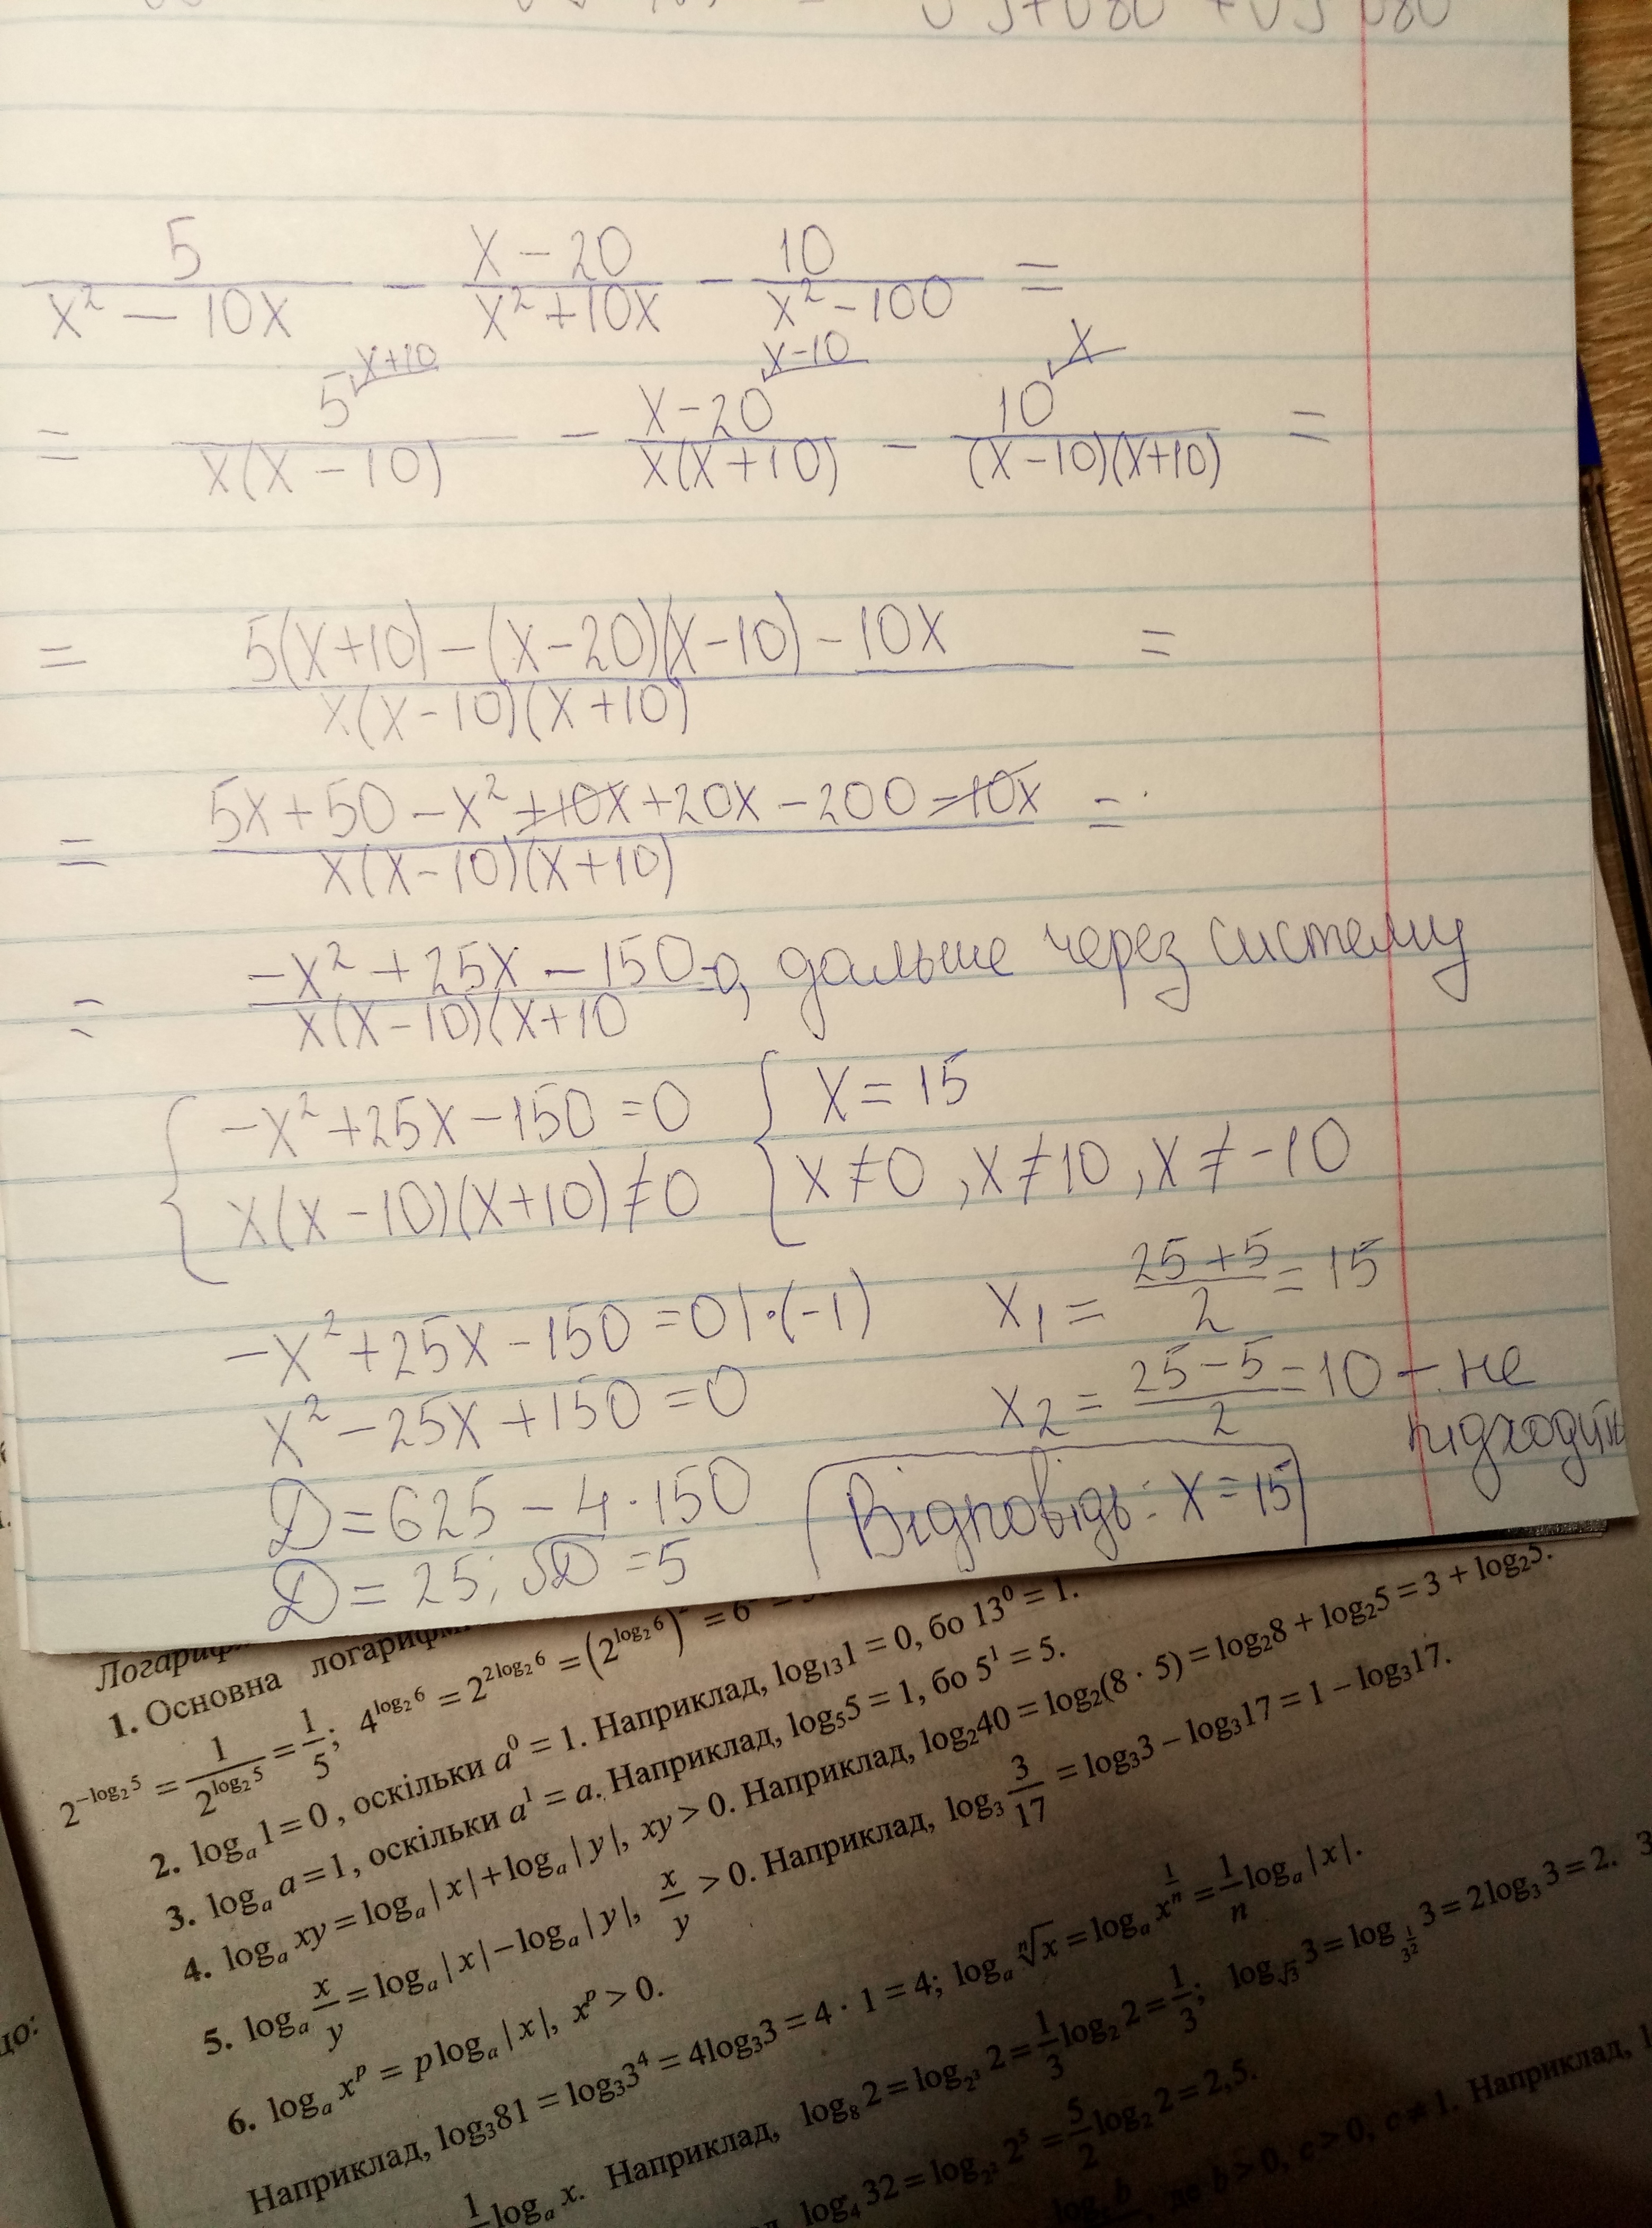 5/(x² - 10x) - (x - 20)/(x² + 10x) - 10/(x² - 100) =
= 5^(x+10)/(x(x - 10)) - (x - 20)^(x-10)/(x(x + 10)) - 10^x/((x - 10)(x + 10)) =
= (5(x+10) - (x - 20)(x - 10) - 10x)/(x(x - 10)(x + 10)) =
= (5x + 50 - x² + 10x + 20x - 200 - 10x)/(x(x - 10)(x + 10)) =
= (-x² + 25x - 150)/(x(x - 10)(x + 10 =0, дальше через систему
{ -x² + 25x - 150 = 0 { x = 15
x(x - 10)(x + 10) ≠ 0 x ≠ 0, x ≠ 10, x ≠ -10
-x² + 25x - 150 = 0 | · (-1)
x² - 25x + 150 = 0
D = 625 - 4 · 150
D = 25; √D = 5
x₁ = (25 + 5)/2 = 15
x₂ = (25 - 5)/2 = 10 - не
підходить
Відповідь: x = 15
1. Основна
2^(-log₂5) = 1/2^(log₂5) = 1/5; 4^(log₂6) = 2^(2log₂6) = (2^(log₂6)) = 6
2. logₐ1 = 0, оскільки a⁰ = 1. Наприклад, log₁₃1 = 0, бо 13⁰ = 1.
3. logₐa = 1, оскільки a¹ = a. Наприклад, log₅5 = 1, бо 5¹ = 5.
4. logₐxy = logₐ|x| + logₐ|y|, xy > 0. Наприклад, log₂40 = log₂(8 · 5) = log₂8 + log₂5 = 3 + log₂5.
5. logₐ x/y = logₐ|x| - logₐ|y|, x/y > 0. Наприклад, log₃ 3/17 = log₃3 - log₃17 = 1 - log₃17.
6. logₐxᵖ = p logₐ|x|, xᵖ > 0.
Наприклад, log₃81 = log₃3⁴ = 4log₃3 = 4 · 1 = 4; logₐ ⁿ√x = logₐx^(1/n) = 1/n logₐ|x|.
1/ logₐx. Наприклад, log₈2 = log_(2³)2 = 1/3 log₂2 = 1/3; log_(√3)3 = log_(3^(1/2))3 = 2log₃3 = 2.
log₄32 = log_(2²)2⁵ = 5/2 log₂2 = 2,5.
b > 0, c > 0, c ≠ 1. Наприклад,
що: